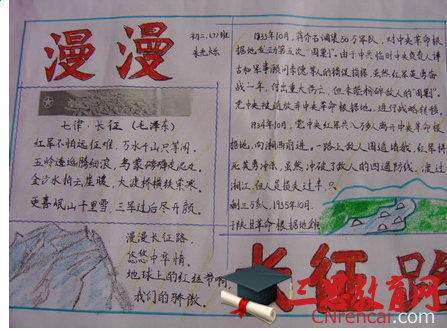 漫漫
初二、(1)班
七律·长征(毛泽东)
红军不怕远征难,万水千山只等闲。
五岭逶迤腾细浪,乌蒙磅礴走泥丸。
金沙水拍云崖暖,大渡桥横铁索寒。
更喜岷山千里雪,三军过后尽开颜。
漫漫长征路,
悠悠中华情。
地球上的红丝带啊,
我们的骄傲。
1933年10月,蒋介石调集50万军队,对中央革命根
据地发动第五次“围剿”。由于中共临时中央负责人博
古和军事顾问李德等人的错误指挥,虽然红军英勇奋
战一年,付出重大伤亡,但未能粉碎敌人的“围剿”。
党中央被迫放弃中央革命根据地,进行战略转移。
1934年10月,党中央红军共八万多人离开中央革命根
据地,向湘西前进,一路上敌人围追堵截,红军将
英勇冲杀,虽然冲破了敌人的四道防线,渡过
湘江,但人员损失过半,只
剩三万多人,1935年10月,
陕甘革命根据地
长征路
三思教育网
CNrencai.com